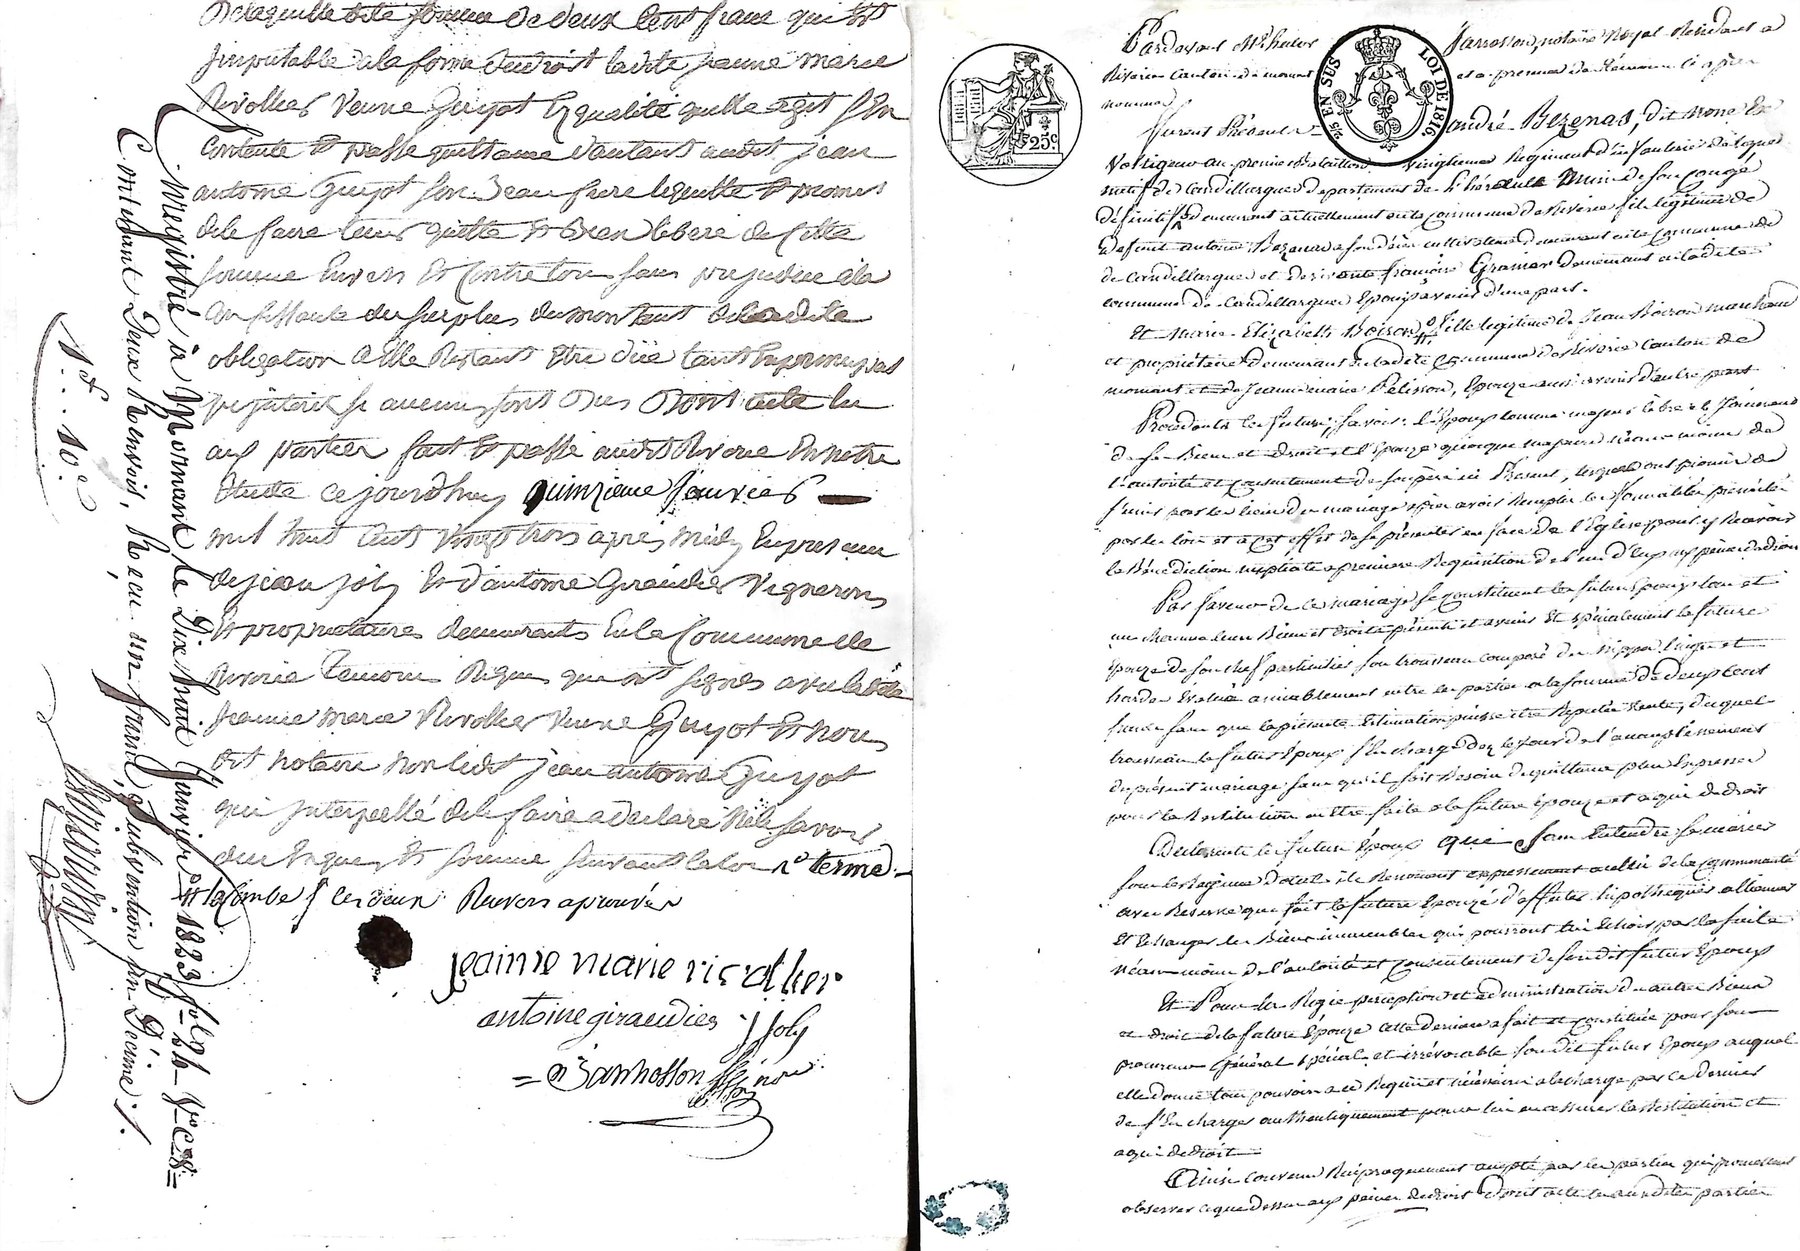 De laquelle dite somme de deux cent francs qui est
imputable a la forme du droit ladite jeanne marie
Rivollier veuve Guyot En qualité quelle agit s'En
Contente et passe quittance d'autant audit jean
antoine Guyot son Beau frere lequitte et promet
de le faire tenir quitte et Bien liberé de cette
somme Envers Et Contre tous sans prejudice a la
du surplus du montant de ladite
obligation a Elle Restant Etre düe tant
Dont acte lu
aux parties fait Et passé audit Riverie En notre
Etude ce jourdhuy quinzieme Janvier —
mil huit Cent vingt trois après midy En presence
de jean joly Et d'antoine Giraudier vignerons
Et proprietaires demeurants En la Commune de
Riverie Temoins Requis qui ont signés avec ladite
Jeanne marie Rivollier veuve Guyot Et nous
dit notaire non ledit jean antoine Guyot
qui interpellé de le faire a declaré ne le savoir
de ce Enquis Et sommé suivant la loi
les deux Renvois aprouvés
jeanne marie rivollier
antoine giraudier j joly
= Janhosson nore
Enregistré à Mornant le Dix huit Janvier 1823 fol. 94 Vo C. 8 =
Contenant Deux Renvois, Reçu un franc, Subvention un Décime ./.
1f .. 10c
25c
2/5 EN SUS
LOI DE 1816
Pardevant Me Janhosson, notaire Royal Résidant a
Riverie Canton de mornant et en presence de témoins ci après
nommés
Furent Présents = andré Bezenas, dit
Voltigeur au premier Bataillon vingtieme Regiment d'infanterie de ligne
natif de Candillargues departement de l'hérault Muni de son Congé
définitif demeurant actuellement en la Commune de Riverie fils legitime de
defunt antoine Bezenas son Vivant cultivateur demeurant en la Commune de
de Candillargues et de vivante françoise Granier demeurant a ladite
commune de Candillargues Epoux avenir d'une part.
Et Marie Elizabeth Boiron fille legitime de Jean Boiron marchand
et propriétaire demeurant en ladite Commune de Riverie canton de
mornant et de Jeanne marie Pelisson, Epouze aussi avenir d'autre part
Procedants les futurs, savoir : l'Epoux comme majeur libre et Jouissant
de ses Biens et droits et l'Epouze quoique majeure néanmoins de
l'autorité et consentement de son père ici Présent, lesquels ont promis de
s'unir par les liens du mariage après avoir Remplis les formalités prescrites
par les lois et a cet effet de se présenter en face de l'Eglise pour y Recevoir
la Bénédiction nuptiale a premiere Requisition de l'un d'Eux
Par faveur de ce mariage se constituent les futurs Epoux tous et
un chacuns leurs Biens et droits présents et avenir Et spécialement la future
Epouze de son chef particulier son trousseau composé de nippes linges et
hardes Evalué amiablement entre les parties a la somme de deux cent
francs sans que la présente Estimation puisse etre Reputée vente, duquel
trousseau le futur Epoux s'En charge dez le jour de l'accomplissement
du présent mariage sans qu'il soit Besoin de quittance plus Expresse
pour la Restitution en Etre faite a la future Epouze et a qui de droit
Declarants les futurs Epoux que s'entendre se marier
sous le Régime dotal ils Renoncent expressement a celui de la Communauté
avec Reserve que fait la future Epouze d'affecter hipothequer aliéner
Et Echanger les Biens immeubles qui pourront lui Echoir par la suite
néanmoins de l'autorité et Consentement de sondit futur Epoux
Et Pour la Régie perception et administration des autres Biens
et droits de la future Epouze cette derniere a fait et constitué pour son
procureur Général Spécial et irrévocable sondit futur Epoux auquel
elle donne tous pouvoirs a ce Requis et nécessaires a la charge par ce dernier
de s'En charger authentiquement pour lui en assurer la Restitution et
a qui de droit
Ainsi convenu Réciproquement accepté par les parties qui promettent
observer ce que dessus aux peines de droit Dont acte lu auxdites parties